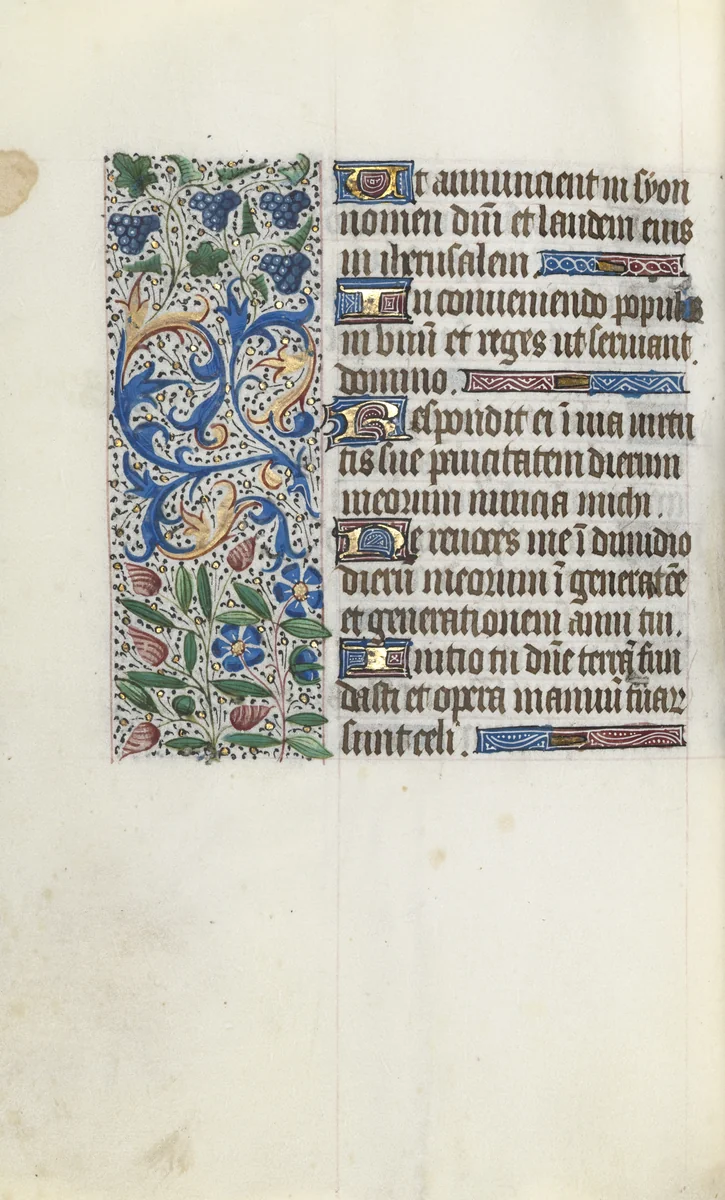 Ut annuncient in syon
nomen dñi et laudem eius
in iherusalem
In conveniendo populus
in vnũ et reges ut seruiant
domino.
Respondit ei ĩ uia uirtu
tis sue paucitatem dierum
meorum nuncia michi.
Ne reuoces me ĩ dimidio
dierũ meorum ĩ generatõe
et generationem anni tui.
Initio tu dñe terrã fun
dasti et opera manuũ tuarꝝ
sunt celi.